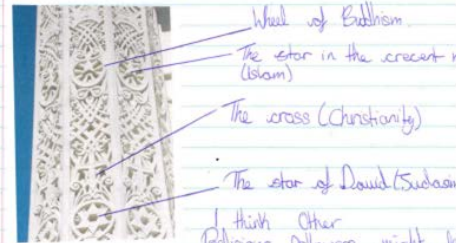 Wheel of Buddhism.
The star in the crecent
(Islam)
The cross (Christianity)
The star of David (Judasim
I think Other
Religious followers might